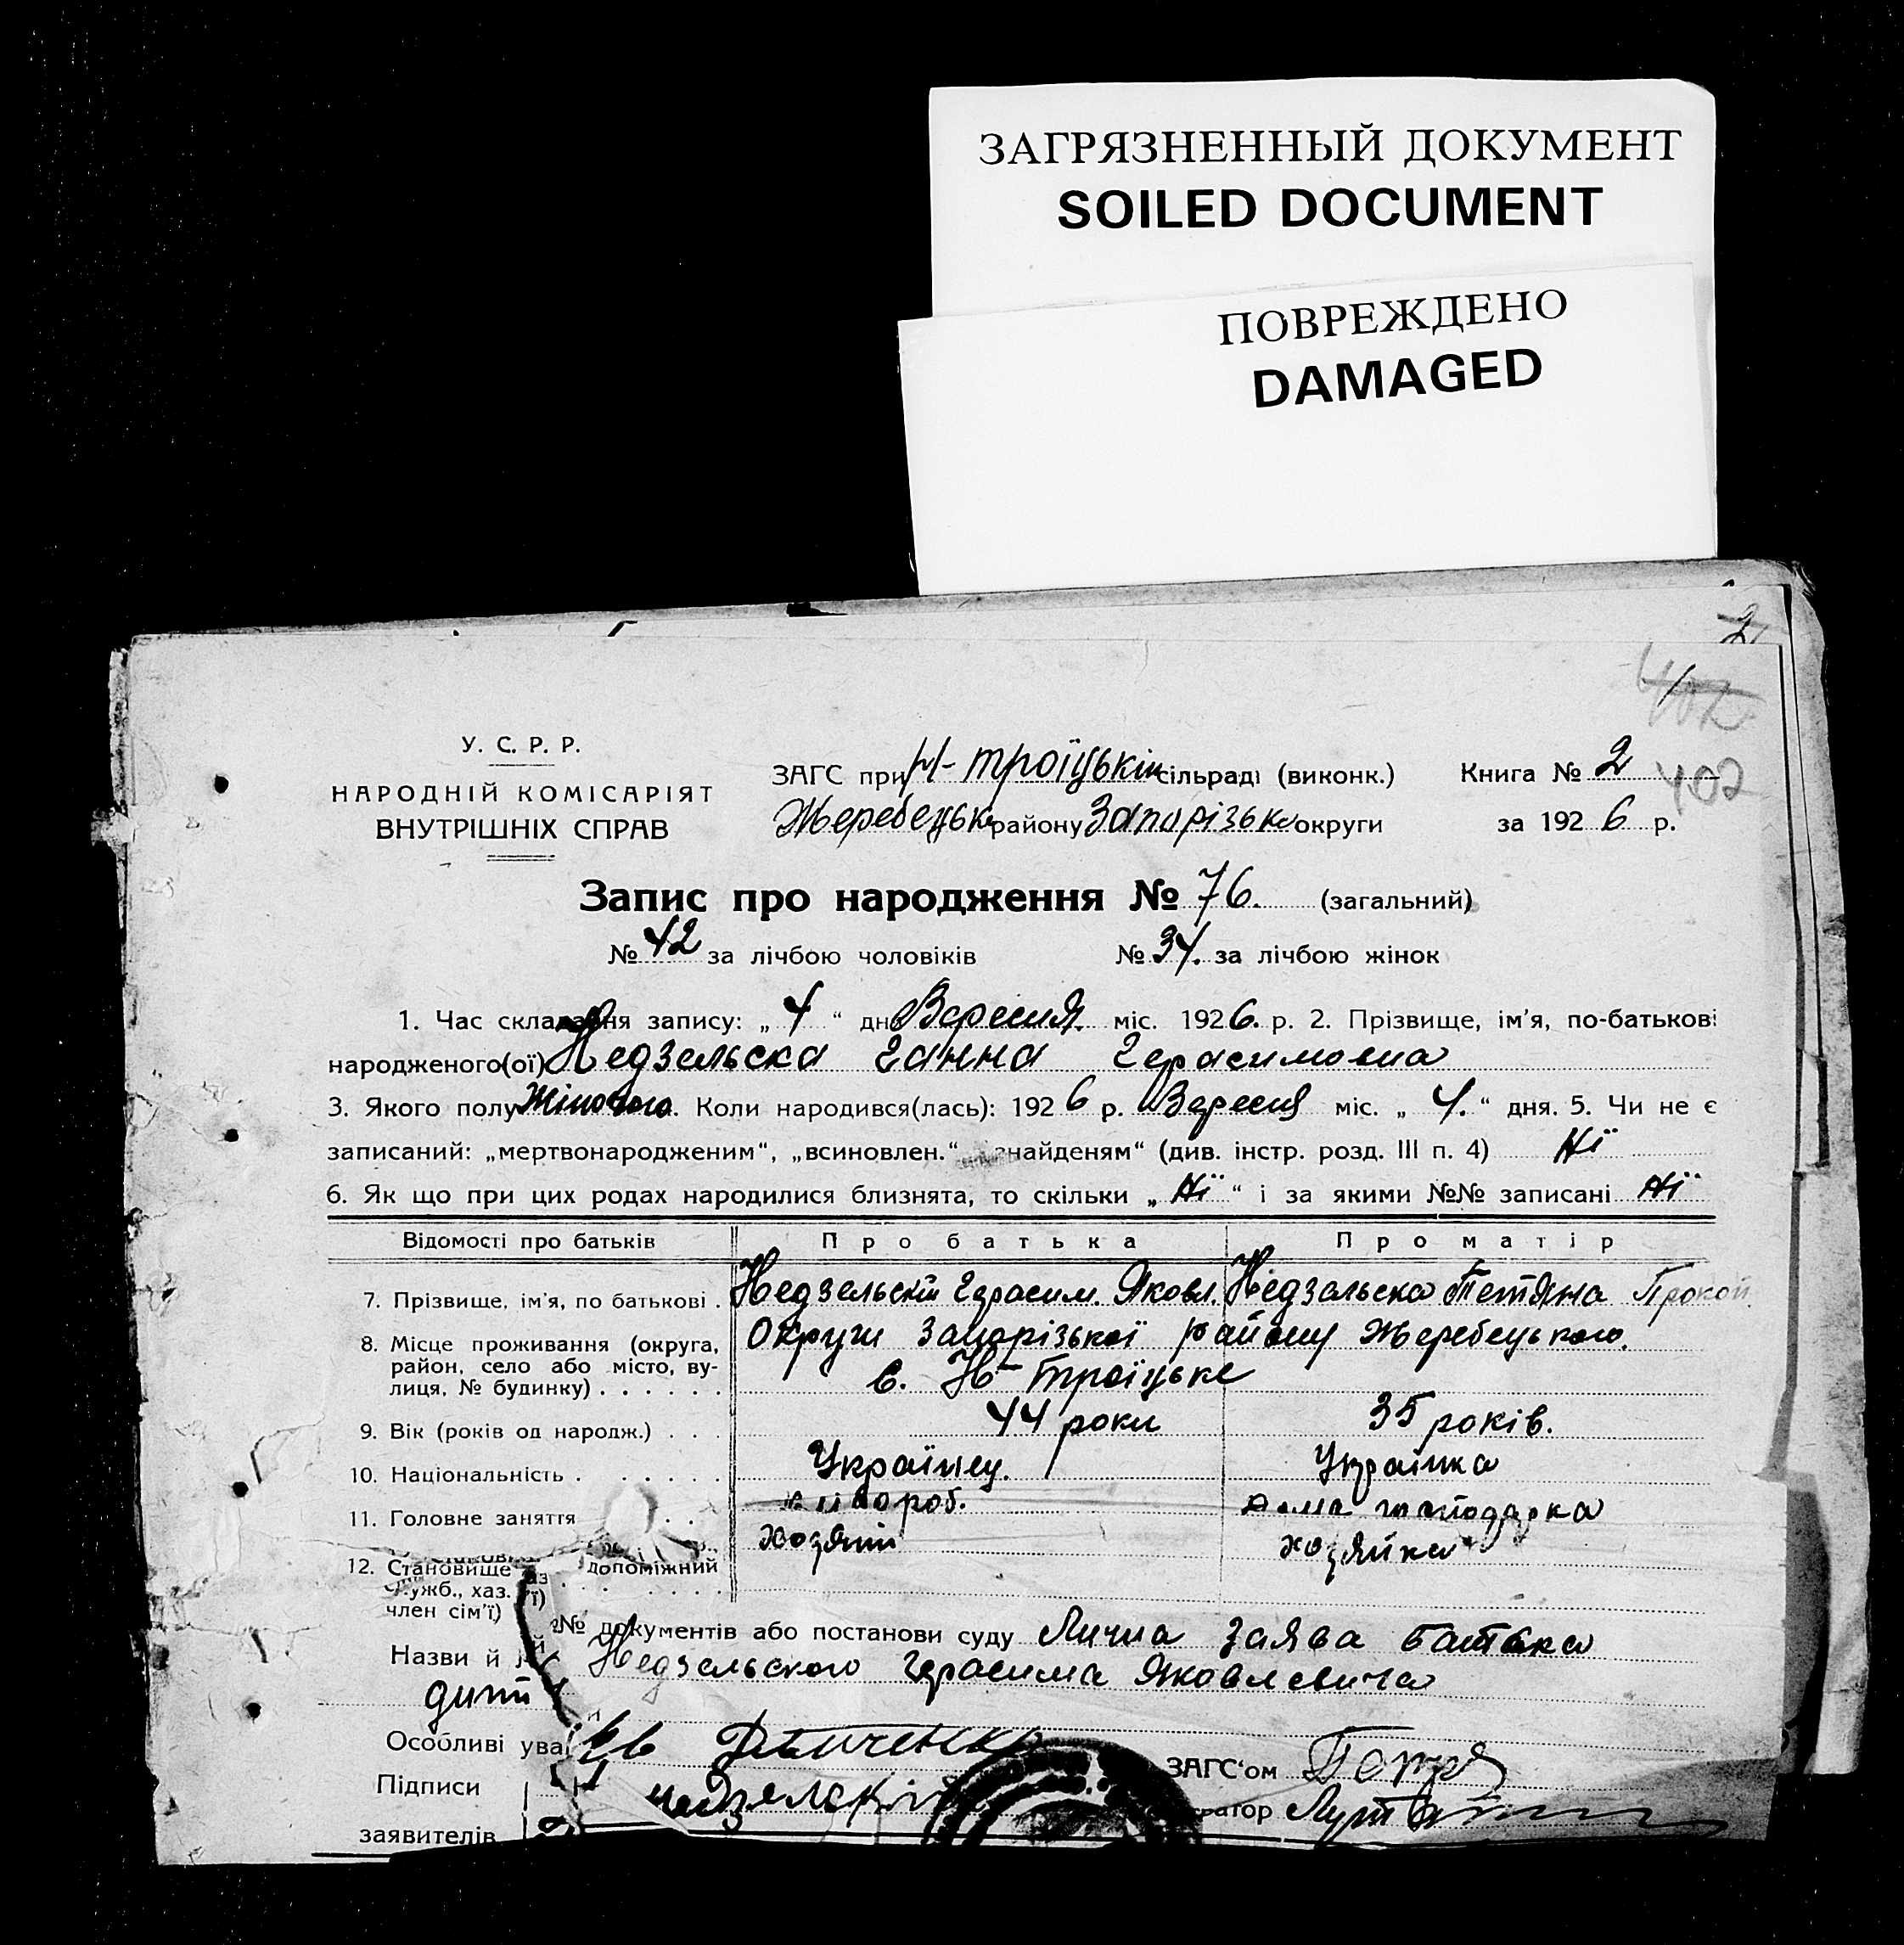 ЗАГРЯЗНЕННЫЙ ДОКУМЕНТ
SOILED DOCUMENT
ПОВРЕЖДЕНО
DAMAGED
2
402
У. С. Р. Р.
НАРОДНІЙ КОМІСАРІЯТ
ВНУТРІШНІХ СПРАВ
ЗАГС при Н-Троїцькім сільраді (виконк.) Книга № 2
402
Жеребецьк району Запорізько округи за 1926 р.
Запис про народження № 76. (загальний)
№ 42 за лічбою чоловіків № 34. за лічбою жінок
1. Час складання запису: „ 4 “ дня Вересня міс. 1926. р. 2. Прізвище, ім'я, по-батькові
народженого(ої) Недзельска Ганна Герасимовна
3. Якого полу Жіночого. Коли народився(лась): 1926 р. Вересня міс. „ 4. “ дня. 5. Чи не є
записаний: „мертвонародженим“, „всиновлен.“ знайденям“ (див. інстр. розд. III п. 4) Ні
6. Як що при цих родах народилися близнята, то скільки „ Ні “ і за якими №№ записані Ні
Відомості про батьків Про батька Про матір
7. Прізвище, ім'я, по батькові . Недзельскій Герасим. Яковл. Недзельска Тетяна Прокоп.
8. Місце проживання (округа, Округи Запорізької району Жеребецького.
район, село або місто, ву-
лиця, № будинку) . . . . . . с. Н-Троїцьке
9. Вік (років од народж.) . . . 44 роки 35 років.
10. Національність . . . . . . Українец. Українка
11. Головне заняття . . хлібороб. дома господарка
хозяїн хозяйка
12. Становище допоміжний
служб., хаз.
член сім'ї)
№ документів або постанови суду Лична заява батька
Назви й Недзельского Герасима Яковлевича
дити
Особливі ува
ЗАГС'ом
Підписи Недзелскій
ратор
заявителів